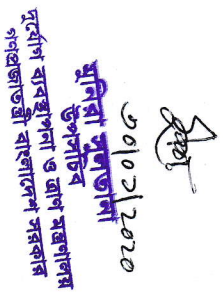 ৩০/০২/২০২০
মুনিরা সুলতানা
উপসচিব
দুর্যোগ ব্যবস্থাপনা ও ত্রাণ মন্ত্রণালয়
গণপ্রজাতন্ত্রী বাংলাদেশ সরকার